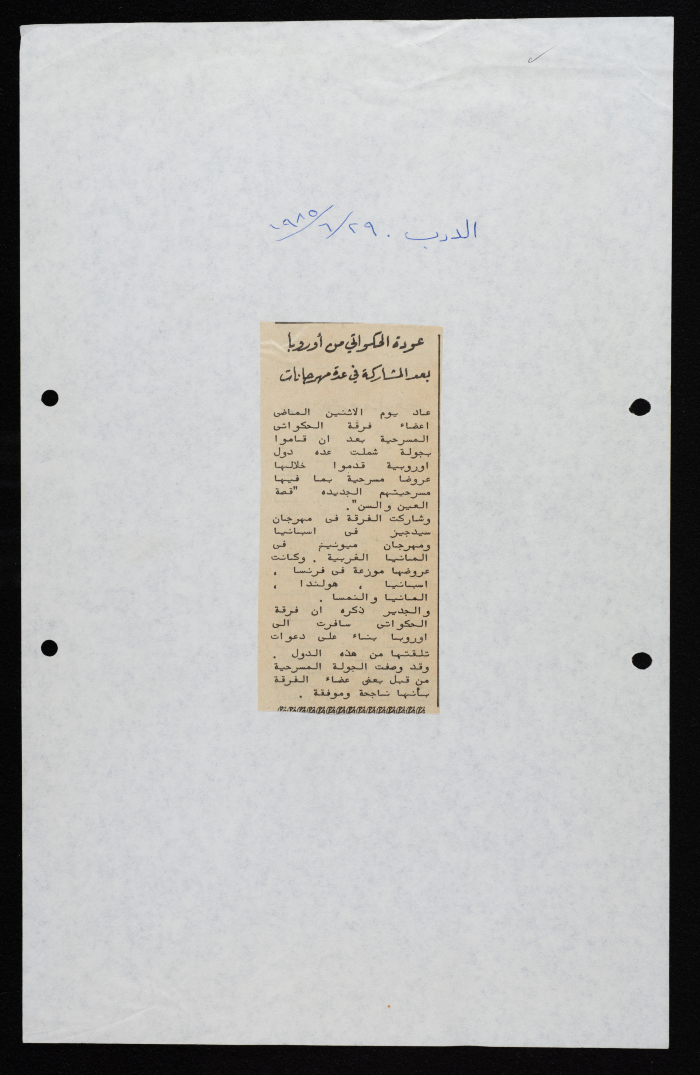 الدرب . ٢٩/٦/١٩٨٥
عودة الحكواتي من أوروبا
بعد المشاركة في عدة مهرجانات
عاد يوم الاثنين الماضى
اعضاء فرقة الحكواتى
المسرحية بعد ان قاموا
بجولة شملت عده دول
اوروبية قدموا خلالها
عروضا مسرحية بما فيها
مسرحيتهم الجديده "قصة
العين والسن".
وشاركت الفرقة فى مهرجان
سيدجيز فى اسبانيا
ومهرجان ميونيخ فى
المانيا الغربية . وكانت
عروضها موزعة فى فرنسا ،
اسبانيا ، هولندا ،
المانيا والنمسا .
والجدير ذكره ان فرقة
الحكواتى سافرت الى
اوروبا بناء على دعوات
تلقتها من هذه الدول .
وقد وصفت الجولة المسرحية
من قبل بعض عضاء الفرقة
بأنها ناجحة وموفقة .